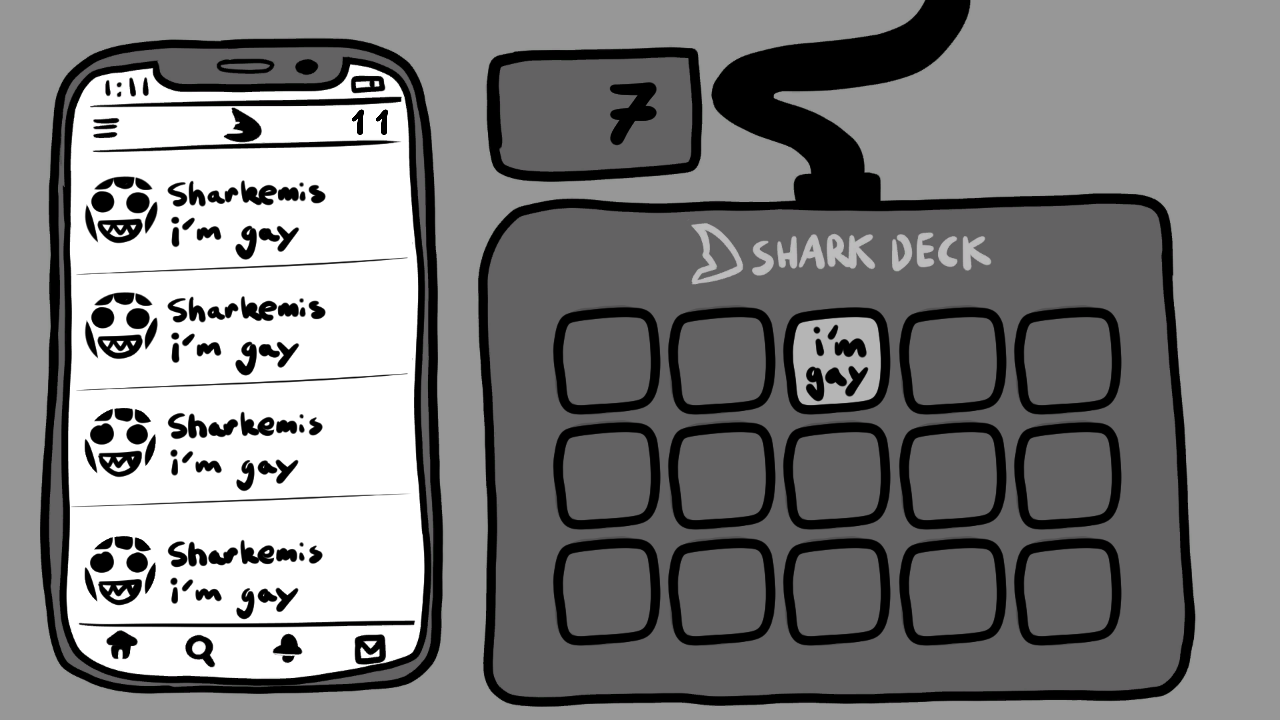 1:11
11
Sharkemis
i'm gay
Sharkemis
i'm gay
Sharkemis
i'm gay
Sharkemis
i'm gay
7
SHARK DECK
i'm
gay